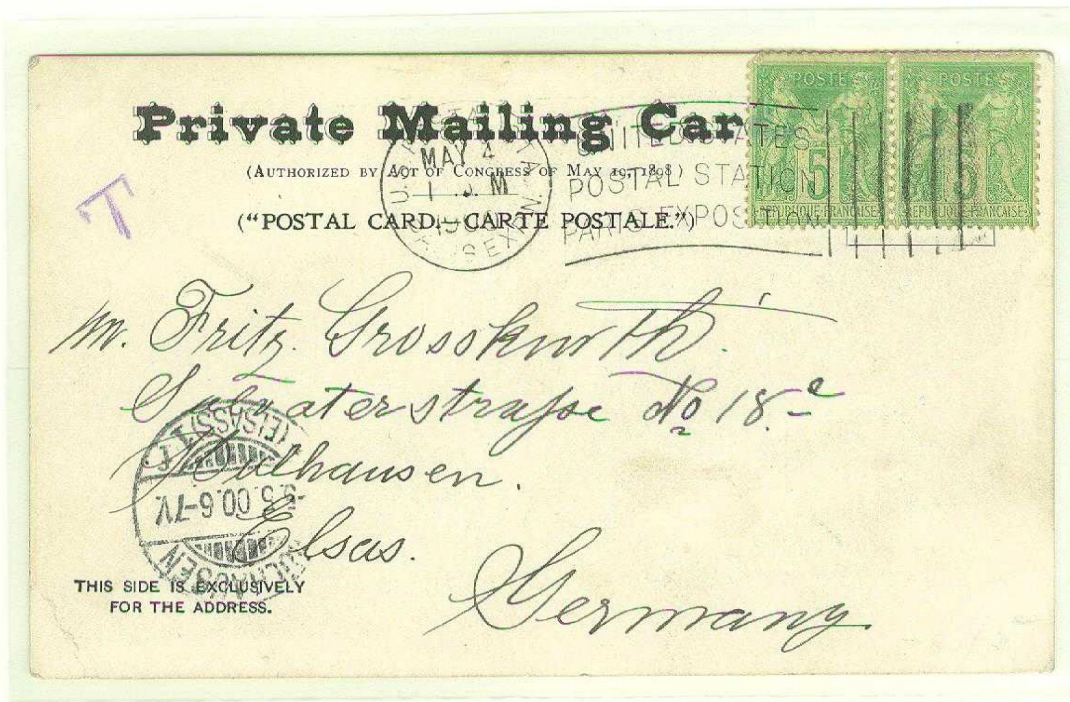 Private Mailing Car
(Authorized by Act of Congress of May 19, 1898)
("POSTAL CARD, CARTE POSTALE.")
T
MAY 4
1
M
UNITED STATES
POSTAL STATION
PARIS EXPOSITION
POSTE
5
REPUBLIQUE FRANCAISE
POSTE
5
REPUBLIQUE FRANCAISE
Mr. Fritz Grosskurth.
strasse No 18 e
Mulhausen.
Elsas.
Germany.
MULHAUSEN
5.00.6-7V.
(ELSASS)
THIS SIDE IS EXCLUSIVELY
FOR THE ADDRESS.